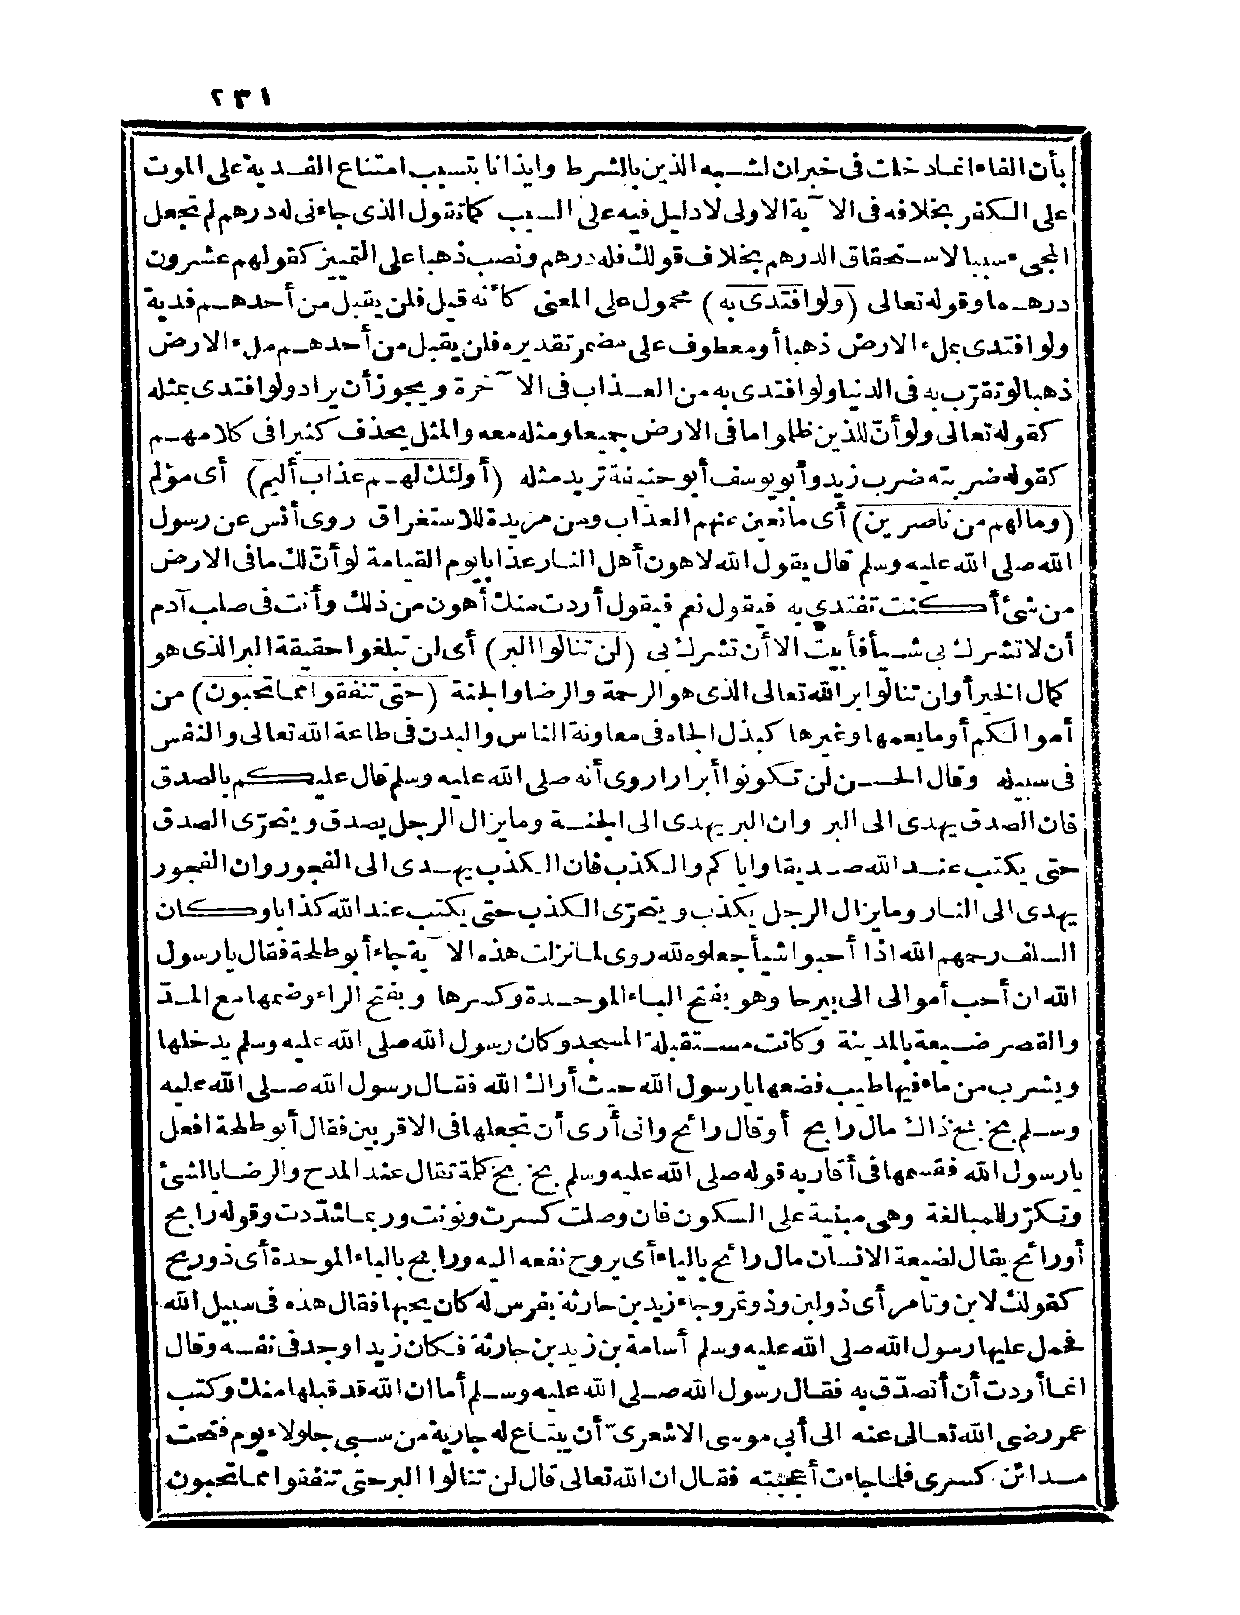 ٢٣١
بأن الفاء انما دخلت فى خبر ان لشبه الذين بالشرط وايذانا بتسبب امتناع الفدية على الموت
على الكفر بخلافه فى الآية الاولى لا دليل فيه على السبب كما تقول الذى جاءنى له درهم لم تجعل
المجىء سببا لاستحقاق الدرهم بخلاف قولك فله درهم ونصب ذهبا على التمييز كقولهم عشرون
درهما وقوله تعالى (ولو افتدى به) محمول على المعنى كأنه قيل فلن يقبل من أحدهم فدية
ولو افتدى بملء الارض ذهبا أو معطوف على مضمر تقديره فلن يقبل من أحدهم ملء الارض
ذهبا لو تقرّب به فى الدنيا ولو افتدى به من العذاب فى الآخرة ويجوز أن يراد ولو افتدى بمثله
كقوله تعالى ولو أنّ للذين ظلموا ما فى الارض جميعا ومثله معه والمثل يحذف كثيرا فى كلامهم
كقوله ضربته ضرب زيد وأبو يوسف أبو حنيفة تريد مثله (أولئك لهم عذاب أليم) أى مؤلم
(وما لهم من ناصرين) أى مانعين عنهم العذاب ومن مزيدة للاستغراق روى أنس عن رسول
الله صلى الله عليه وسلم قال يقول الله لاهون أهل النار عذابا يوم القيامة لو أنّ لك ما فى الارض
من شئ أكنت تفتدى به فيقول نعم فيقول أردت منك أهون من ذلك وأنت فى صلب آدم
أن لا تشرك بى شيأ فأبيت الا أن تشرك بى (لن تنالوا البر) أى لن تبلغوا حقيقة البر الذى هو
كمال الخير أو ان تنالوا بر الله تعالى الذى هو الرحمة والرضا والجنة (حتى تنفقوا مما تحبون) من
أموالكم أو ما يعمها وغيرها كبذل الجاه فى معاونة الناس والبدن فى طاعة الله تعالى والنفس
فى سبيله وقال الحسن لن تكونوا أبرارا روى أنه صلى الله عليه وسلم قال عليكم بالصدق
فان الصدق يهدى الى البر وان البر يهدى الى الجنة وما يزال الرجل يصدق ويتحرّى الصدق
حتى يكتب عند الله صديقا واياكم والكذب فان الكذب يهدى الى الفجور وان الفجور
يهدى الى النار وما يزال الرجل يكذب ويتحرّى الكذب حتى يكتب عند الله كذابا وكان
السلف رحمهم الله اذا أحبوا شيأ جعلوه لله روى لما نزلت هذه الآية جاء أبو طلحة فقال يا رسول
الله ان أحب أموالى الى بيرحا وهو بفتح الباء الموحدة وكسرها وبفتح الراء وضمها مع المدّ
والقصر ضيعة بالمدينة وكانت مستقبلة المسجد وكان رسول الله صلى الله عليه وسلم يدخلها
ويشرب من ماء فيها طيب فضعها يا رسول الله حيث أراك الله فقال رسول الله صلى الله عليه
وسلم بخ بخ ذاك مال رابح أو قال رائح وانى أرى أن تجعلها فى الاقربين فقال أبو طلحة افعل
يا رسول الله فقسمها فى أقاربه قوله صلى الله عليه وسلم بخ بخ كلمة تقال عند المدح والرضا بالشئ
وتكرّر للمبالغة وهى مبنية على السكون فان وصلت كسرت ونونت وربما شدّدت وقوله رابح
أو رائح يقال لضيعة الانسان مال رائح بالياء أى يروح نفعه اليه ورابح بالباء الموحدة أى ذو ربح
كقولك لابن وتامر أى ذو لبن وذو تمر وجاء زيد بن حارثة بفرس له كان يحبها فقال هذه فى سبيل الله
فحمل عليها رسول الله صلى الله عليه وسلم أسامة بن زيد بن حارثة فكان زيدا وجد فى نفسه وقال
انما أردت أن أتصدّق به فقال رسول الله صلى الله عليه وسلم أما ان الله قد قبلها منك وكتب
عمر رضى الله تعالى عنه الى أبى موسى الاشعرىّ أن يبتاع له جارية من سبى جلولاء يوم فتحت
مدائن كسرى فلما جاءت أعجبته فقال ان الله تعالى قال لن تنالوا البر حتى تنفقوا مما تحبون